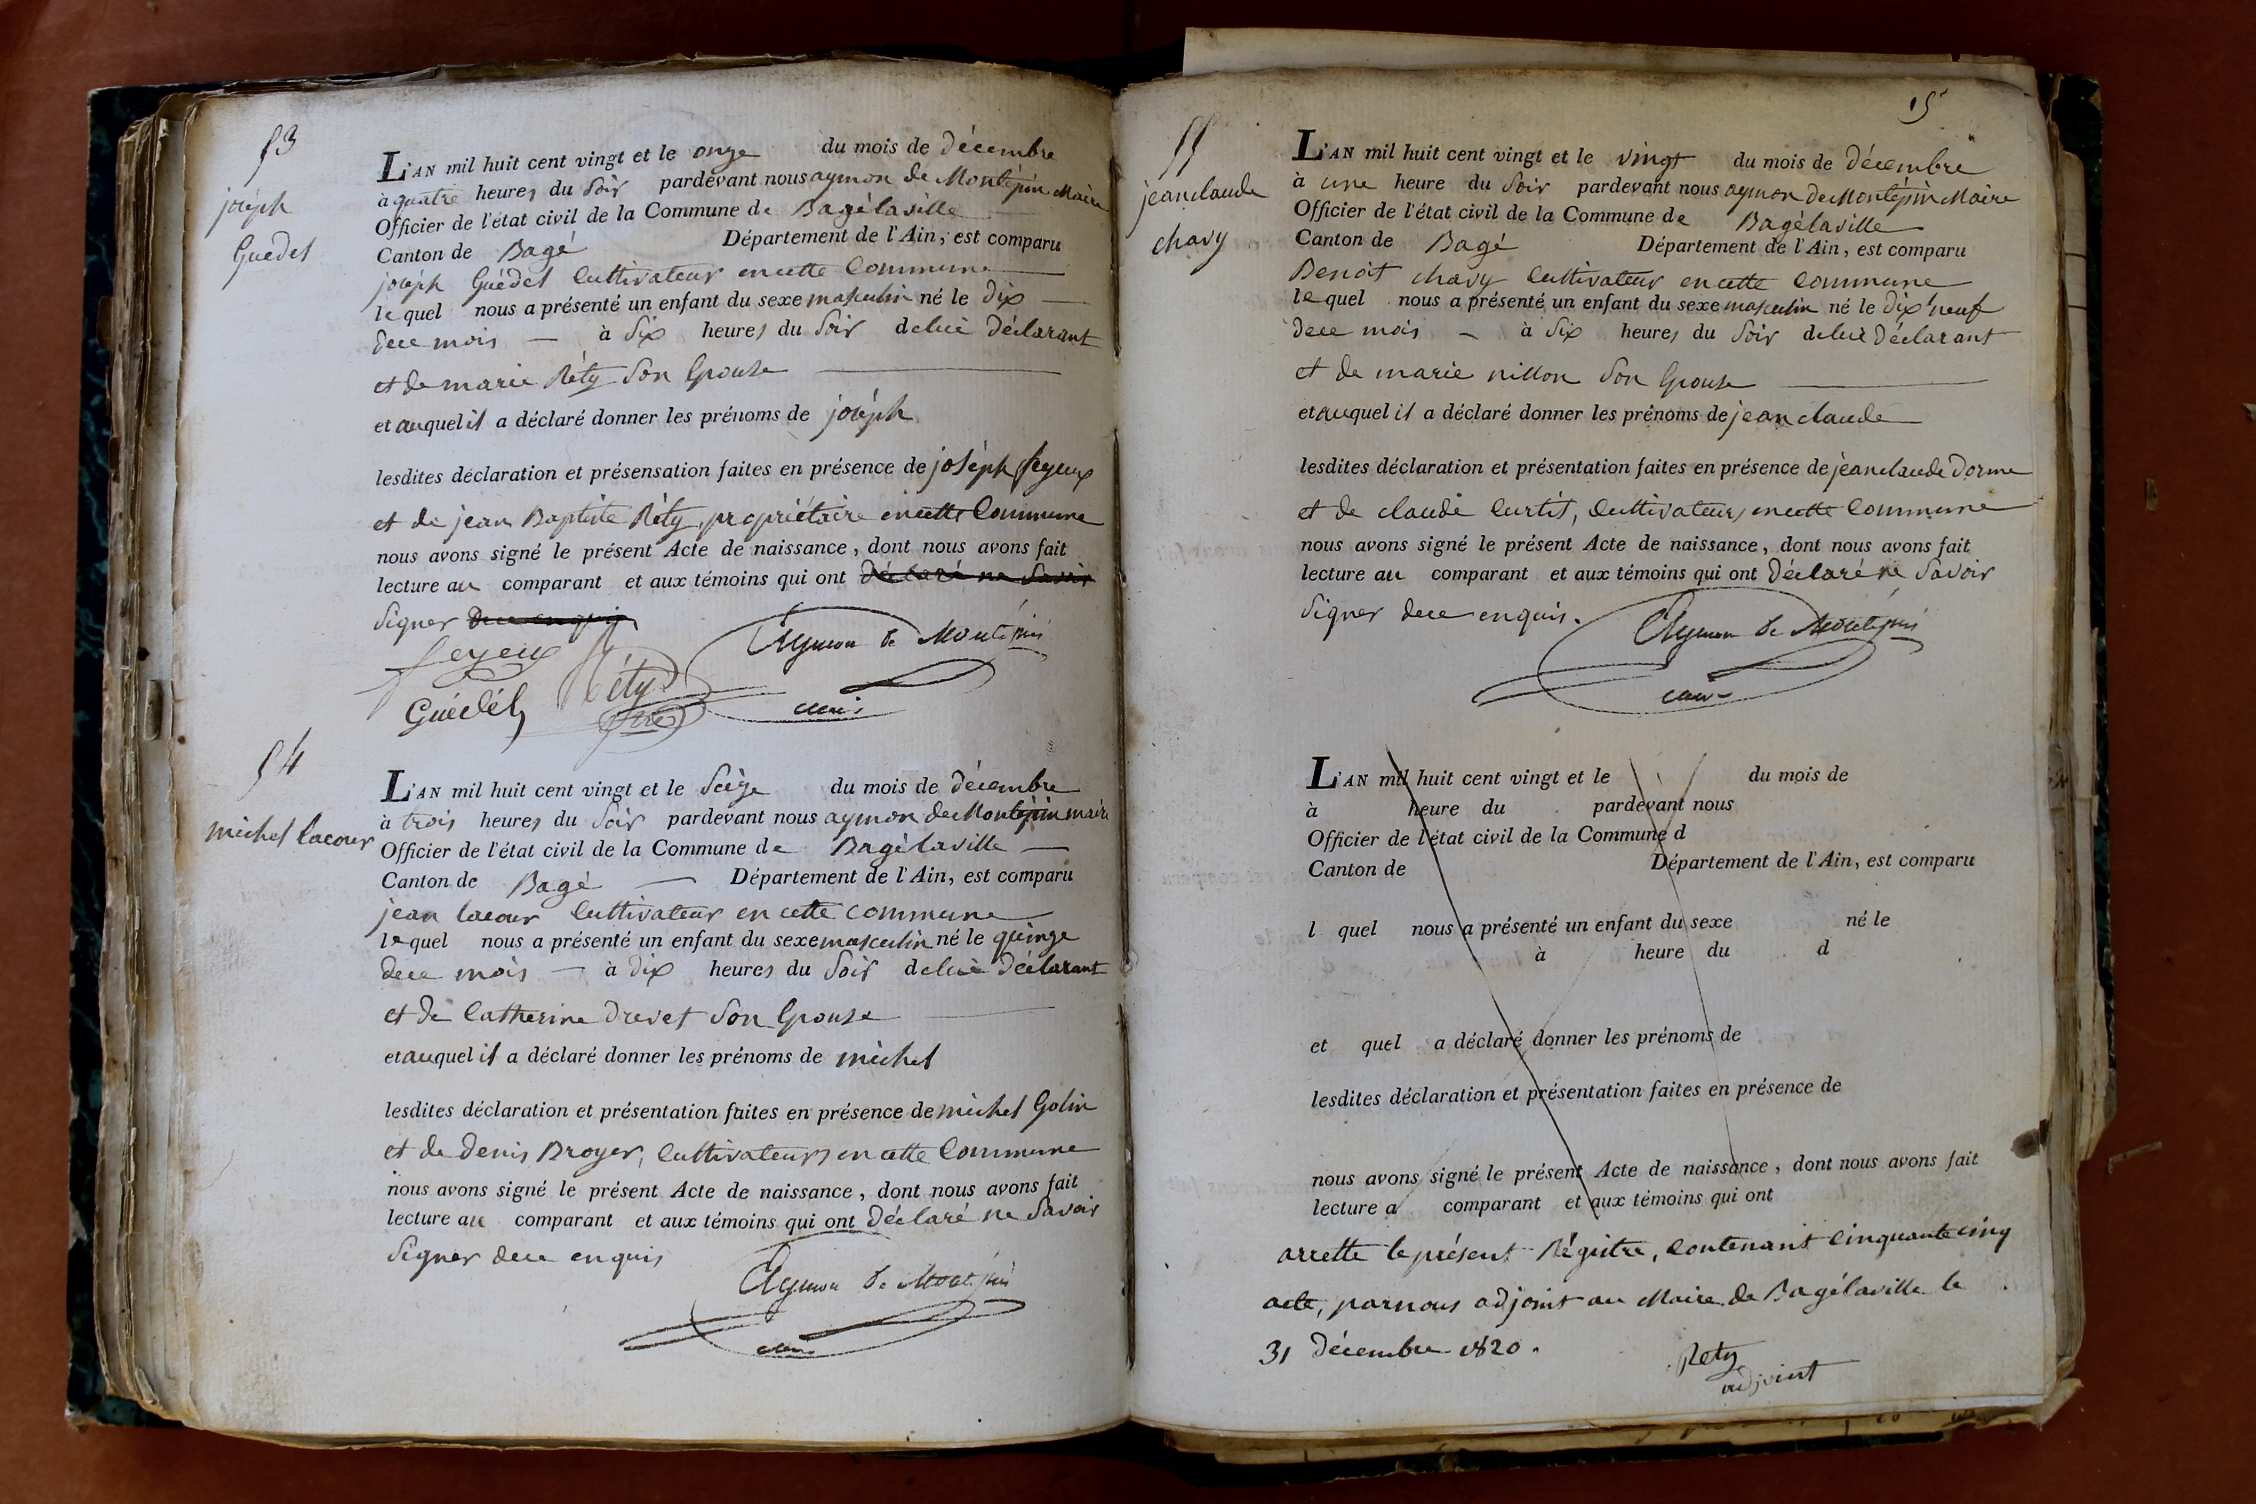 53
joseph
Guédel
L'AN mil huit cent vingt et le onze du mois de décembre
à quatre heures du Soir pardevant nous aymon de Montépin Maire
Officier de l'état civil de la Commune de Bagélaville
Canton de Bagé Département de l'Ain, est comparu
joseph Guédel Cultivateur en cette Commune
lequel nous a présenté un enfant du sexe masculin né le dix
dece mois à Six heures du Soir delui déclarant
et de marie Réty Son Epouse
et auquel il a déclaré donner les prénoms de joseph
lesdites déclaration et présensation faites en présence de joséph feyeux
et de jean Baptiste Réty, propriétaire en cette Commune
nous avons signé le présent Acte de naissance, dont nous avons fait
lecture au comparant et aux témoins qui ont déclaré ne Savoir
Signer dece enquis
feyeux Réty Aymon de Montépin
Guédel maire
54
michel lacour
L'AN mil huit cent vingt et le Seize du mois de décembre
à trois heures du Soir pardevant nous aymon de Montépin maire
Officier de l'état civil de la Commune de Bagélaville
Canton de Bagé Département de l'Ain, est comparu
jean lacour Cultivateur en cette commune
lequel nous a présenté un enfant du sexe masculin né le quinze
dece mois à dix heures du Soir delui déclarant
et de Catherine drevet Son Epouse
et auquel il a déclaré donner les prénoms de michel
lesdites déclaration et présentation faites en présence de michel Golin
et de denis Broyer, Cultivateurs en cette Commune
nous avons signé le présent Acte de naissance, dont nous avons fait
lecture au comparant et aux témoins qui ont déclaré ne Savoir
Signer dece enquis
Aymon de Montépin
maire
15
55
jeanclaude
chavy
L'AN mil huit cent vingt et le vingt du mois de décembre
à une heure du Soir pardevant nous aymon de Montépin Maire
Officier de l'état civil de la Commune de Bagélaville
Canton de Bagé Département de l'Ain, est comparu
Benoit chavy Cultivateur en cette Commune
lequel nous a présenté un enfant du sexe masculin né le dix neuf
dece mois à Six heures du Soir delui déclarant
et de marie nillon Son Epouse
et auquel il a déclaré donner les prénoms de jean claude
lesdites déclaration et présentation faites en présence de jeanclaude dorme
et de claude Curtil, Cultivateurs en cette Commune
nous avons signé le présent Acte de naissance, dont nous avons fait
lecture au comparant et aux témoins qui ont déclaré ne Savoir
Signer dece enquis.
Aymon de Montépin
maire
L'AN mil huit cent vingt et le du mois de
à heure du pardevant nous
Officier de l'état civil de la Commune d
Canton de Département de l'Ain, est comparu
l quel nous a présenté un enfant du sexe né le
à heure du d
et quel a déclaré donner les prénoms de
lesdites déclaration et présentation faites en présence de
nous avons signé le présent Acte de naissance, dont nous avons fait
lecture a comparant et aux témoins qui ont
arretté le présent Régistre, Contenant Cinquante cinq
acte, par nous adjoint au Maire de Bagélaville le
31 décembre 1820.
Rety
adjoint